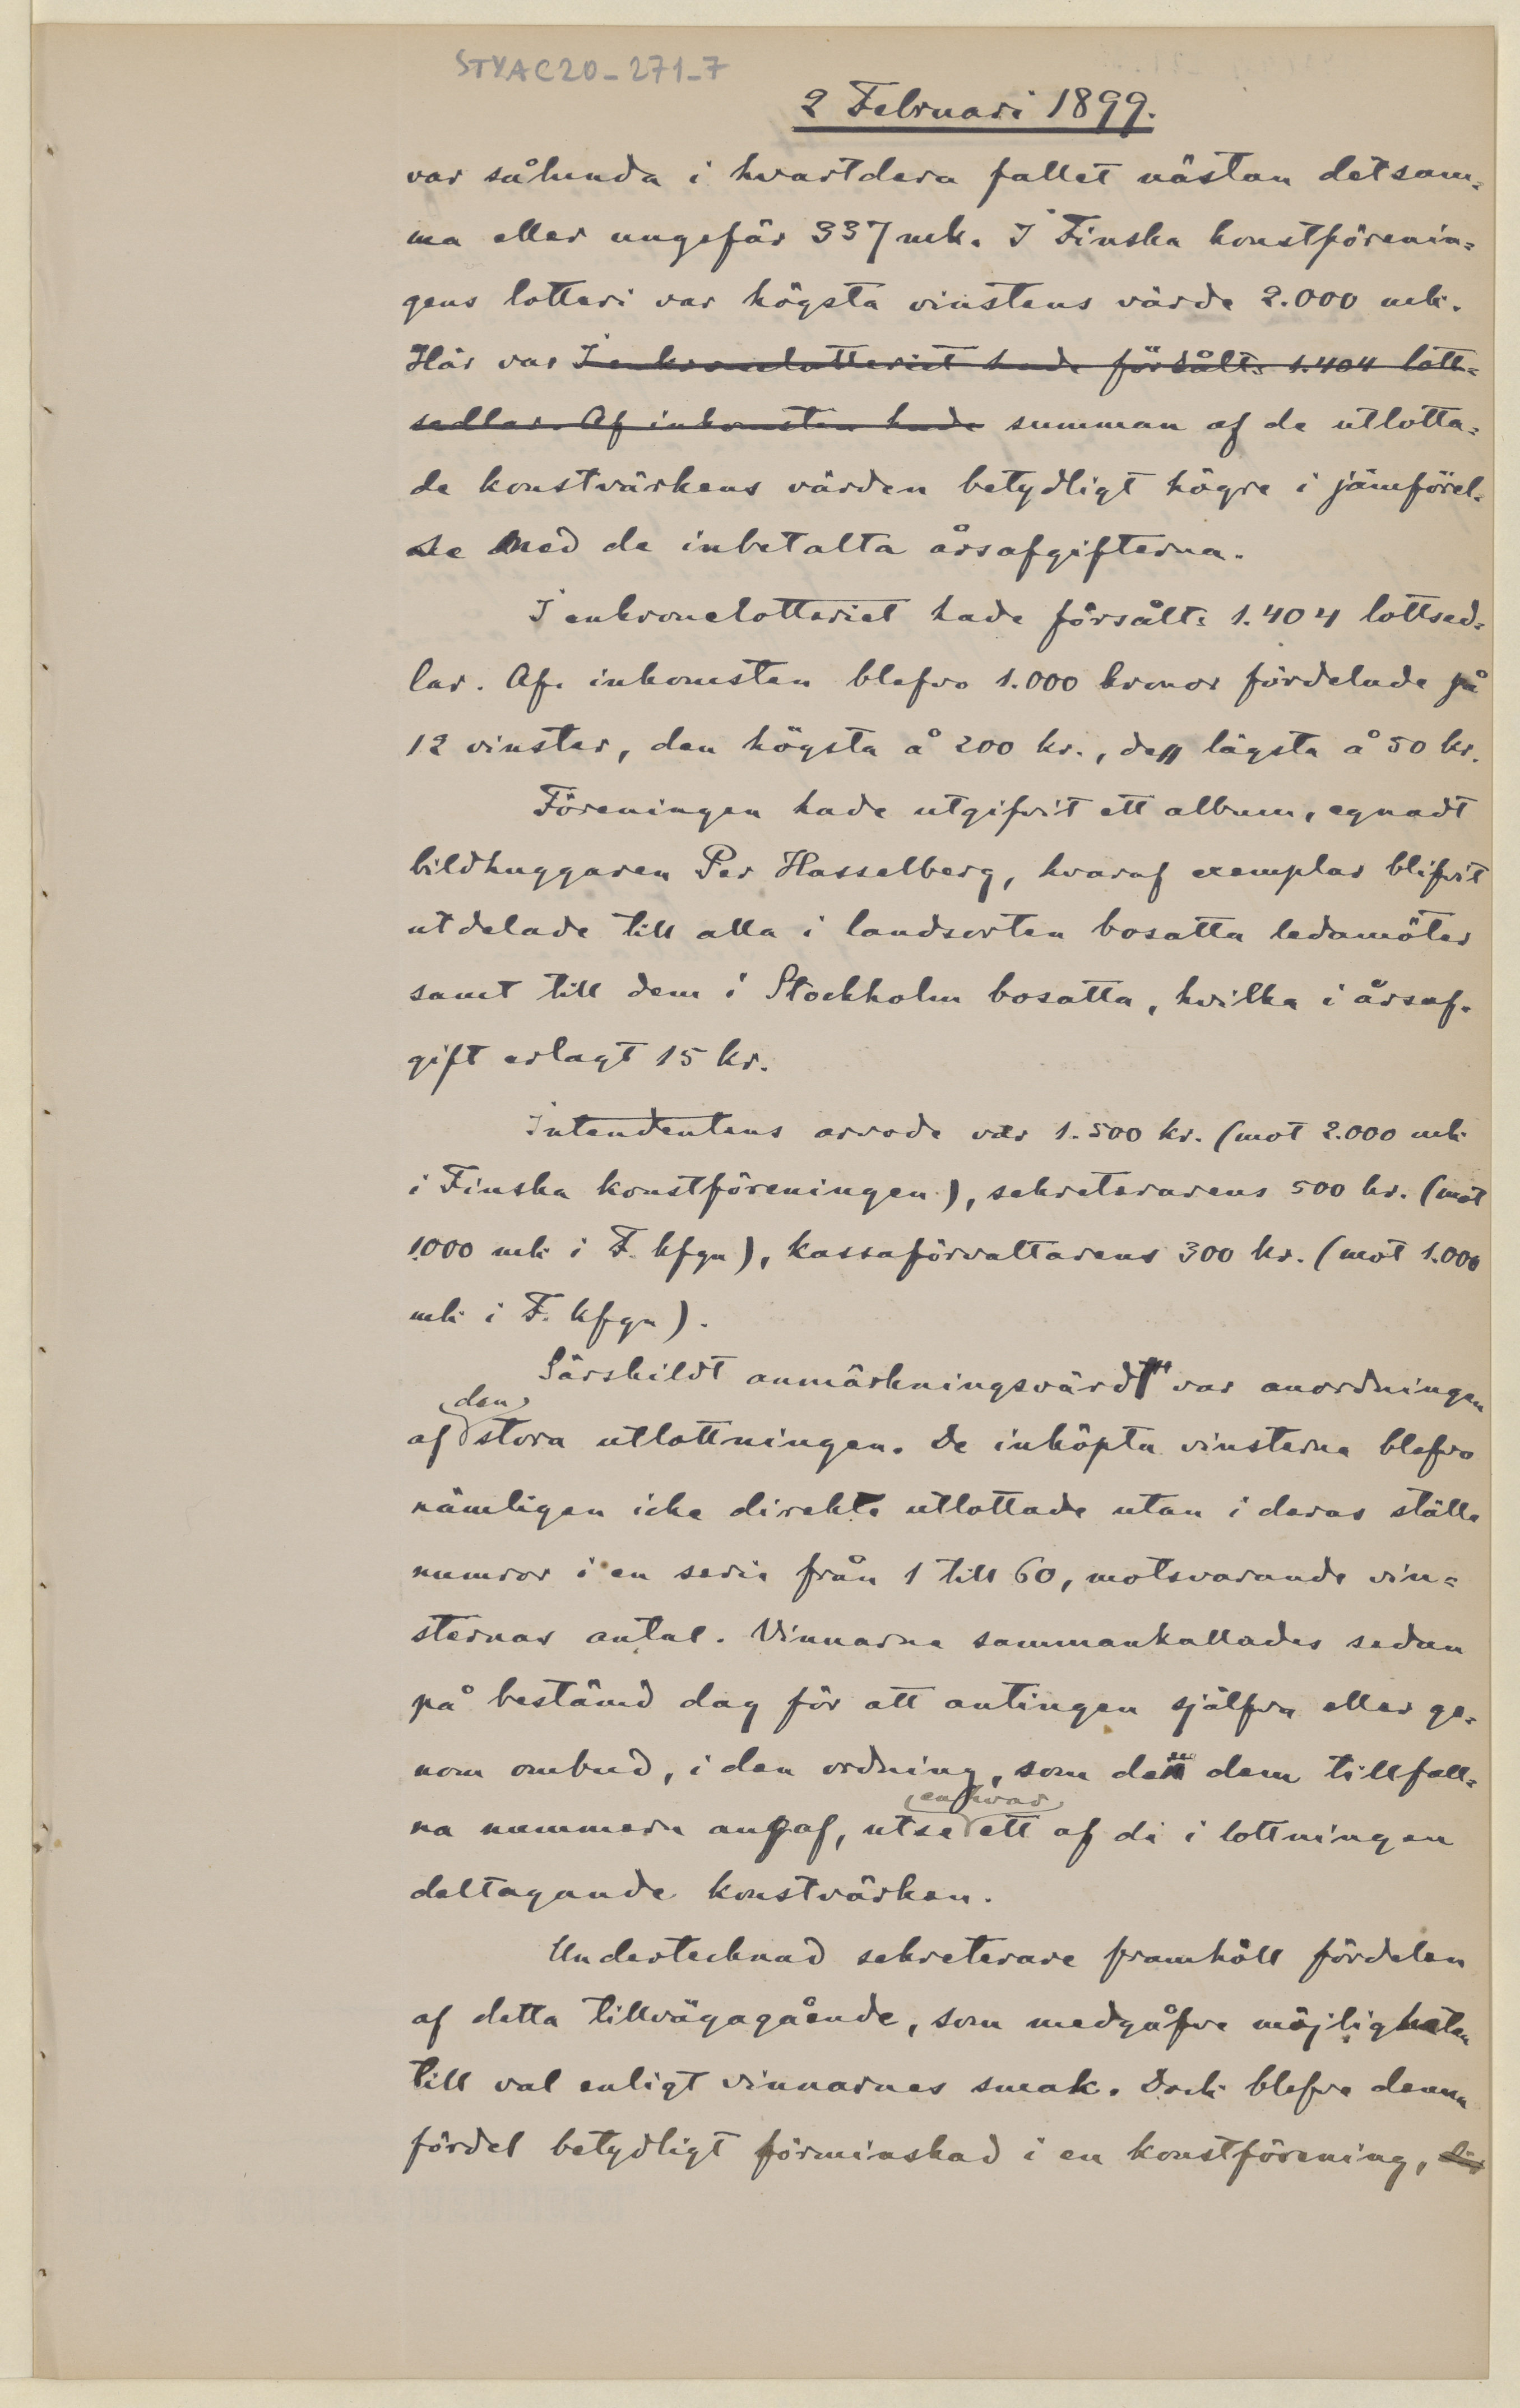 STYAC20-271-7
2 Februari 1899.
var sålunda i hvartdera fallet nästan detsam=
ma eller ungefär 337 mk. I Finska konstförenin=
gens lotteri var högsta vinstens värde 2.000 mk.
Här var I enkronelotteriet hade försålts 1.404 lott=
sedlar. Af inkomsten hade summan af de utlotta=
de konstvärkens värden betydligt högre i jämförel=
se med de inbetalta årsafgifterna.
I enkronelotteriet hade försålts 1.404 lottsed=
lar. Af inkomsten blefvo 1.000 kronor fördelade på
12 vinster, den högsta å 200 kr., den lägsta å 50 kr.
Föreningen hade utgifvit ett album, egnadt
bildhuggaren Per Hasselberg, hvaraf exemplar blifvit
utdelade till alla i landsorten bosatta ledamöter
samt till dem i Stockholm bosatta, hvilka i årsaf=
gift erlagt 15 kr.
Intendentens arvode var 1.500 kr. (mot 2.000 mk
i Finska konstföreningen), sekreterarens 500 kr. (mot
1.000 mk i F. kfgn), kassaförvaltarens 300 kr. (mot 1.000
mk i F. kfgn).
Särskildt anmärkningsvärd var anordningen
den
af stora utlottningen. De inköpta vinsterna blefvo
nämligen icke direkte utlottade utan i deras ställe
numror i en serie från 1 till 60, motsvarande vin=
sternas antal. Vinnarne sammankallades sedan
på bestämd dag för att antingen själfva eller ge=
nom ombud, i den ordning, som det dem tillfall=
enhvar
na nummern angaf, utse ett af de i lottningen
deltagande konstvärken.
Undertecknad sekreterare framhöll fördelen
af detta tillvägagående, som medgåfve möjligheten
till val enligt vinnarnes smak. Dock blefve denna
fördel betydligt förminskad i en konstförening,